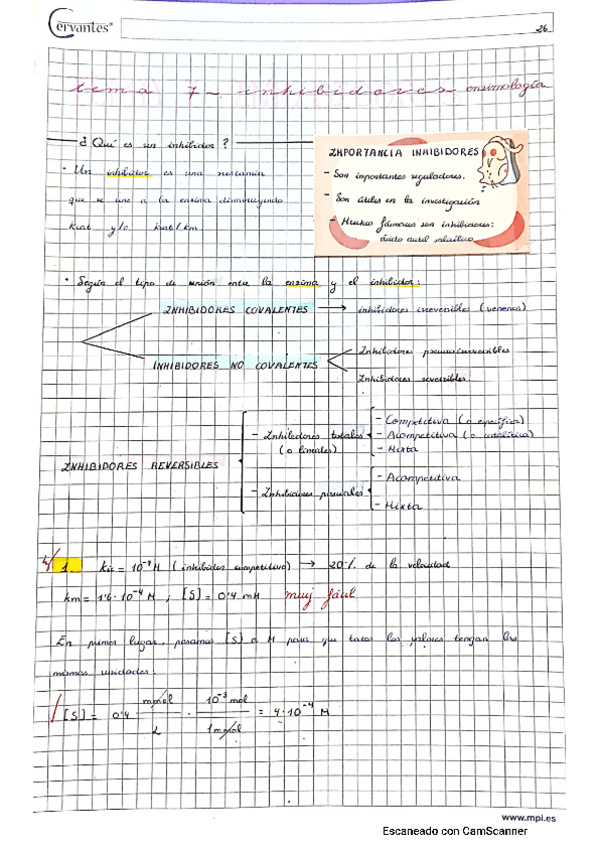 Cervantes®
26
tema 7 - inhibidores enzimología
¿Qué es un inhibidor?
- Un inhibidor es una sustancia
que se une a la enzima disminuyendo
kcat y/o kcat/km.
IMPORTANCIA INHIBIDORES
- Son importantes reguladores.
- Son útiles en la investigación
- Muchos fármacos son inhibidores:
• Según el tipo de unión entre la enzima y el inhibidor:
INHIBIDORES COVALENTES → inhibidores irreversibles (venenos)
INHIBIDORES NO COVALENTES
Inhibidores pseudoirreversibles
Inhibidores reversibles.
INHIBIDORES REVERSIBLES
- Inhibidores totales
(o lineales)
- Competitiva (o específica)
- Acompetitiva (o catalítica)
- Mixta
- Inhibidores parciales
- Acompetitiva
- Mixta
1. (inhibidor competitivo) → 20% de la velocidad
km = 1'6·10⁻⁴ M ; [S] = 0'4 mM muy fácil
En primer lugar, pasamos [S] a M para que todos los valores tengan las
mismas unidades:
[S] = 0'4 mmol/L · 10⁻³ mol/1 mmol = 4·10⁻⁴ M
www.mpi.es
Escaneado con CamScanner